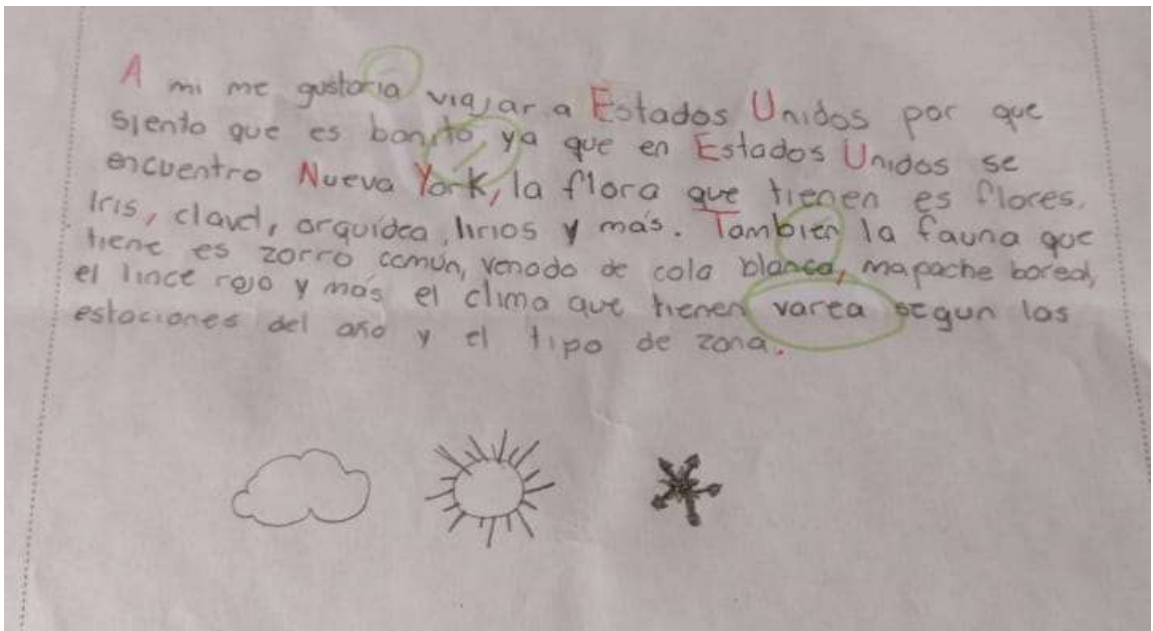 A mi me gustaría viajar a Estados Unidos por que
siento que es bonito ya que en Estados Unidos se
encuentro Nueva York, la flora que tienen es flores,
Iris, clavel, orquídea, lirios y más. También la fauna que
tiene es zorro común, venado de cola blanca, mapache boreal,
el lince rojo y más el clima que tienen varea segun las
estaciones del año y el tipo de zona.